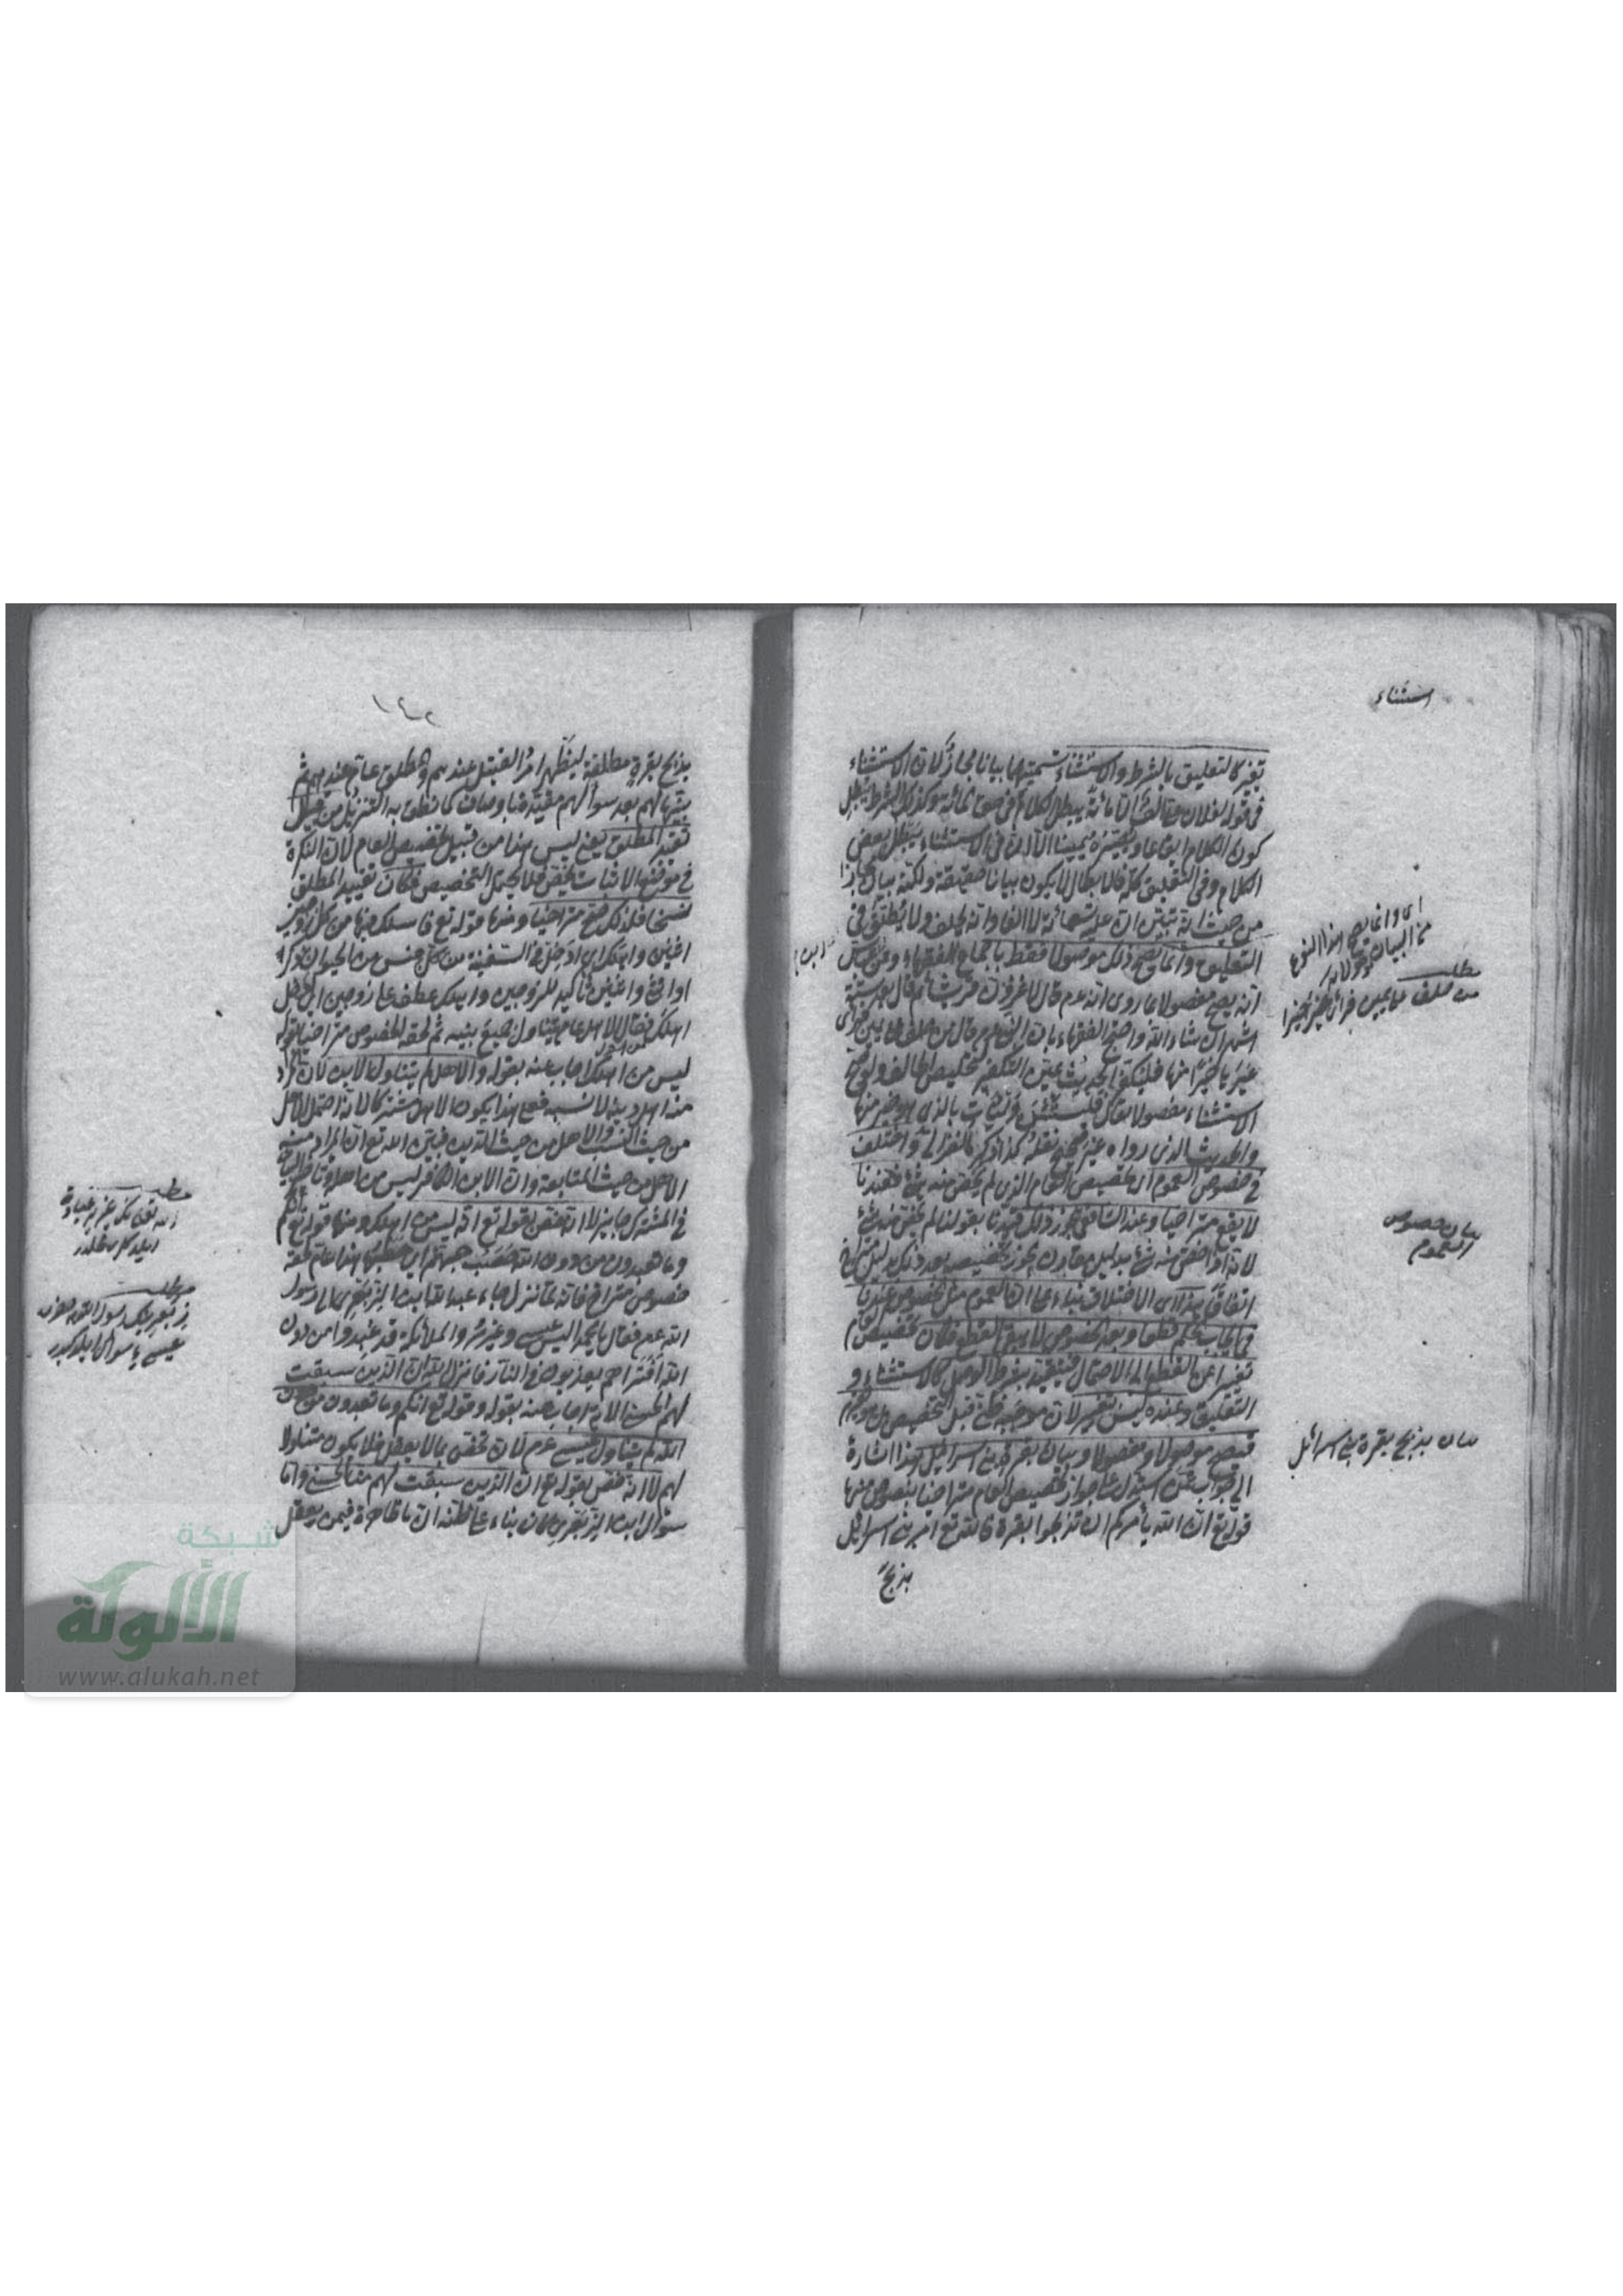 استثناء
تغيير كالتعليق بالشرط والاستثناء تسميتهما بيانا مجاز لان الاستثناء
في قوله لفلان على الف الا مائة يبطل الكلام في حق المائة وكذلك الشرط يبطل
كون الكلام ايقاعا ويصيره يمينا الا ان في الاستثناء يبطل بعض
الكلام وفي التعليق كله فالابطال لا يكون بيانا حقيقة ولكنه بيان مجازا
من حيث انه تبين ان عليه تسعمائة لا الفا وانه يحلف ولا يطلق في
التعليق وانما يصح ذلك موصولا فقط باجماع الفقهاء وعن ابن عباس
انه يصح مفصولا لما روى انه عم قال لاغزون قريشا ثم قال بعد سنة
ان شاء الله واحتج الفقهاء بان النبي عم قال من حلف على يمين فرأى
غيرها خيرا منها فليكفر الحديث عين التكفير لتخليص الحالف ولو صح
الاستثناء مفصولا لقال فليستثن وليأت بالذي هو خير منها
والحديث الذي رواه غير صحيح نقله كذا ذكره الغزالي واختلف
في خصوص العموم اي تخصيص العام الذي لم يخص منه شئ فعندنا
لا يقع متراخيا وعند الشافعي يجوز ذلك قيدنا بقولنا لم يخص منه شئ
لانه اذا خص منه شئ بدليل مقارن يجوز تخصيصه بعد ذلك بدليل متراخ
اتفاقا وهذا اي الاختلاف بناء على ان العموم مثل الخصوص عندنا
في ايجاب الحكم قطعا وبعد الخصوص لا يبقى القطع فكان تخصيص العام
تغييرا عن القطع الى الاحتمال فيتقيد بشرط الوصل كالاستثناء و
التعليق وعنده ليس بتغيير لان موجبه ظني قبل التخصيص بل هو تقرير
فيصح موصولا ومفصولا وبيان بقرة بني اسرائيل هذا اشارة
الى جواب عمن استدل على جواز تخصيص العام متراخيا بنصوص منها
قوله تع ان الله يأمركم ان تذبحوا بقرة فالله تع امر بني اسرائيل
بذبح
اى وانما يصح هذا النوع
من البيان
مطلب
من حلف على يمين فرأى غيرها خيرا
بيان خصوص
العموم
بيان بذبح بقرة بني اسرائيل
١٤٢
بذبح بقرة مطلقة ليظهر امر القتيل عندهم والمطلق عام عندهم ثم
بينها لهم بعد سؤالهم مقيدة باوصاف كما نطق به التنزيل من قبيل
تقييد المطلق يعني ليس هذا من قبيل تخصيص العام لان النكرة
في موضع الاثبات تخص فلا يحتمل التخصيص فكان تقييد المطلق
نسخا فلذلك صح متراخيا ومنها قوله تع فاسلك فيها من كل زوجين
اثنين واهلك اي ادخل في السفينة من كل جنس من الحيوان ذكرا
او انثى واثنين تأكيد للزوجين واهلك عطف على زوجين اي ادخل
اهلك فقال الاهل عام يتناول جميع بنيه ثم لحقه الخصوص متراخيا بقوله
ليس من اهلك اجاب عنه بقوله والاهل لم يتناول الابن لان المراد
منه اهل دينه لا نسبه فعلى هذا يكون الاهل مشتركا لانه احتمل الاهل
من حيث النسب والاهل من حيث الدين فبين الله تع ان المراد منه
الاهل من حيث المتابعة وان الابن الكافر ليس من اهله وتأخير البيان
في المشترك جايز لا انه خص بقوله تع انه ليس من اهلك ومنها قوله تع انكم
وما تعبدون من دون الله حصب جهنم اي حطبها هذا عام لحقه
خصوص متراخ فانه لما نزل جاء عبد الله ابن الزبعرى الى رسول
الله عم فقال يا محمد اليس عيسى وعزير والملائكة قد عبدوا من دون
الله افتراهم يعذبون في النار فانزل الله ان الذين سبقت
لهم الحسنى الاية اجاب عنه بقوله وقوله تع انكم وما تعبدون من دون
الله لم يتناول عيسى عم لان ما تختص بما لا يعقل فلا يكون متناولا
لهم لا انه خص بقوله تع ان الذين سبقت لهم منا الحسنى وانما
سؤال ابن الزبعرى كان بناء على ظنه ان ما ظاهرة فيمن يعقل
مطلب
مطلب
شبكة
الألوكة
www.alukah.net